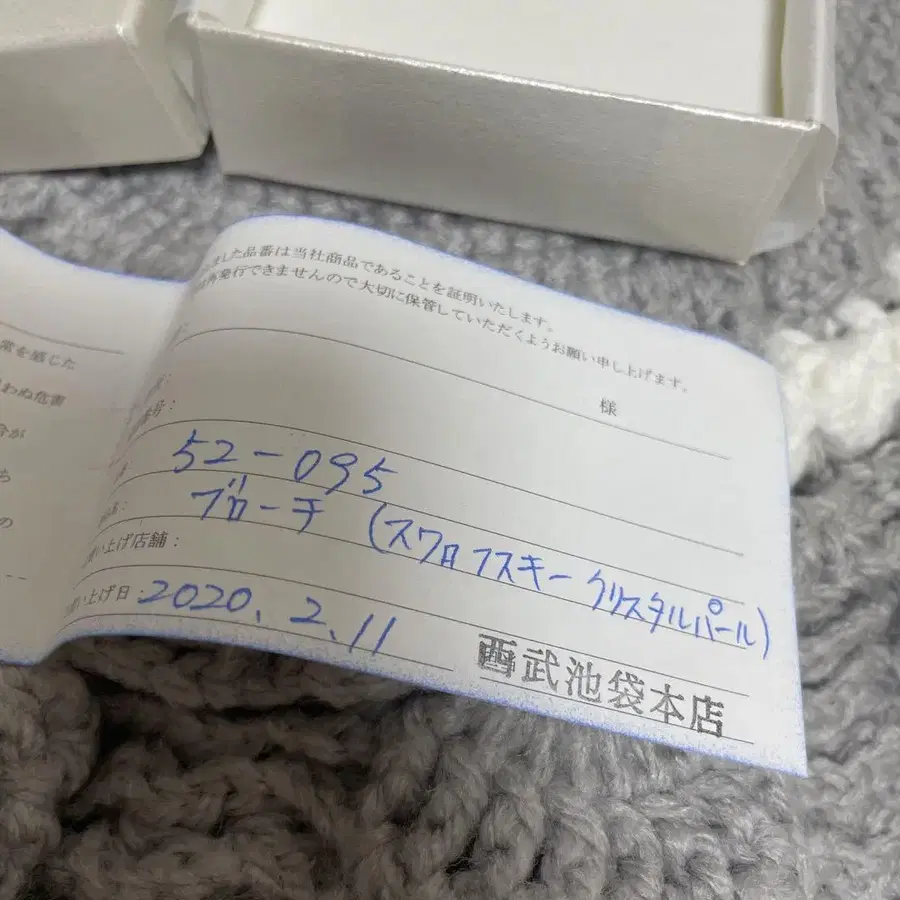 常を感じた
わぬ危害
合が
ち
の
ました品番は当社商品であることを証明いたします。
再発行できませんので大切に保管していただくようお願い申し上げます。
様
号：
52-095
ブローチ (スワロフスキークリスタルパール)
い上げ店舗：
い上げ日：2020.2.11
西武池袋本店